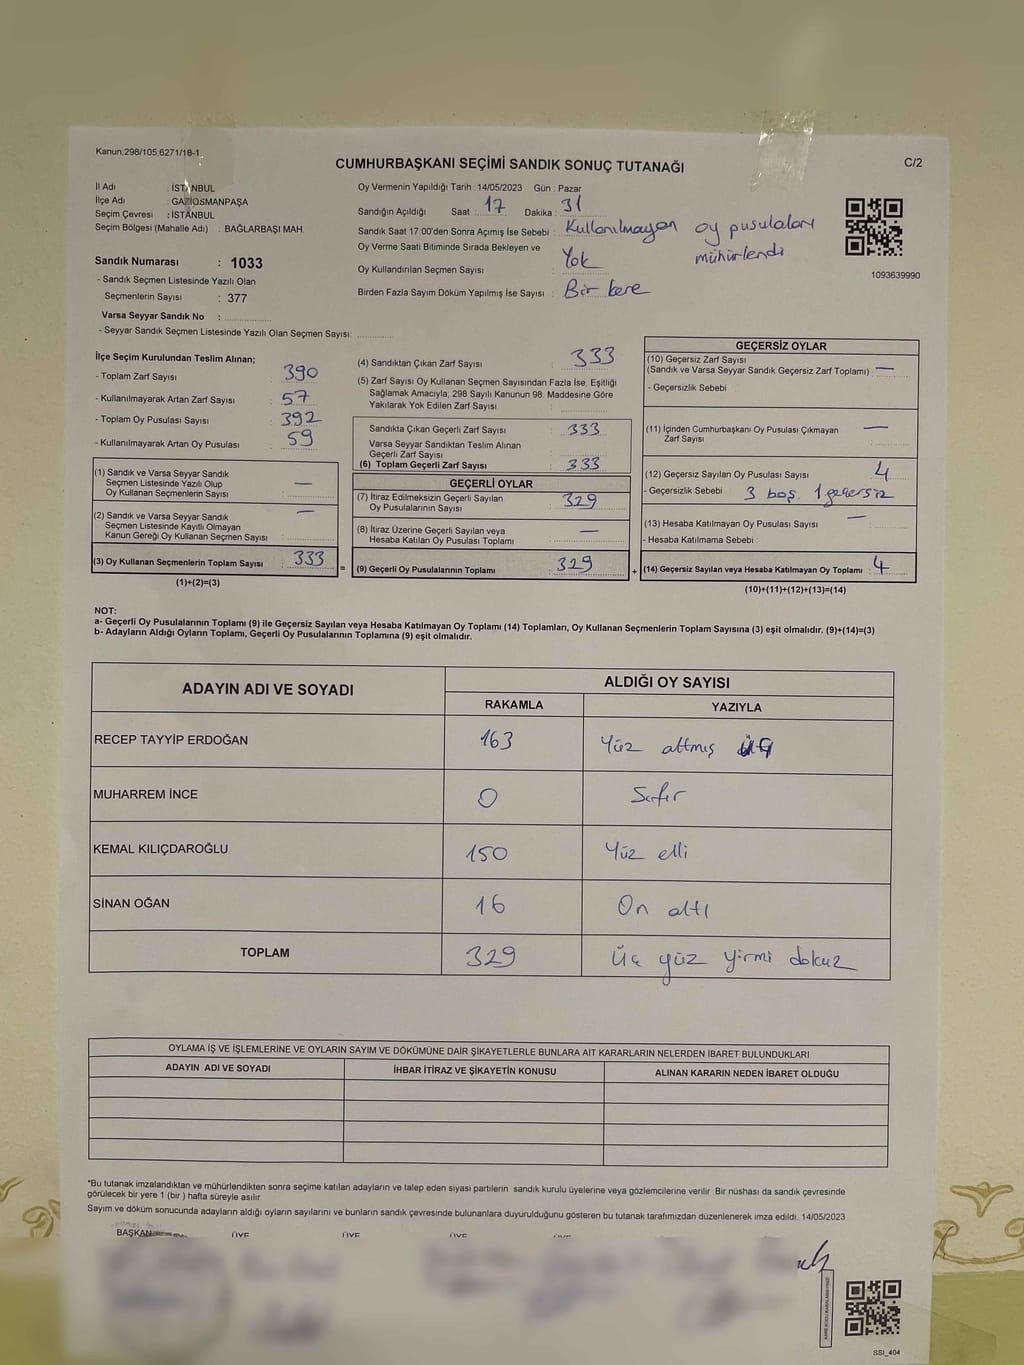 Kanun.298/105.6271/18-1
CUMHURBAŞKANI SEÇİMİ SANDIK SONUÇ TUTANAĞI
C/2
İl Adı : İSTANBUL
İlçe Adı : GAZİOSMANPAŞA
Seçim Çevresi : İSTANBUL
Seçim Bölgesi (Mahalle Adı) : BAĞLARBAŞI MAH.
Sandık Numarası : 1033
- Sandık Seçmen Listesinde Yazılı Olan
Seçmenlerin Sayısı : 377
Varsa Seyyar Sandık No :
- Seyyar Sandık Seçmen Listesinde Yazılı Olan Seçmen Sayısı:
Oy Vermenin Yapıldığı Tarih : 14/05/2023 Gün : Pazar
Sandığın Açıldığı Saat : 17 Dakika : 31
Sandık Saat 17:00'den Sonra Açımış İse Sebebi : Kullanılmayan oy pusulaları
mühürlendi
Oy Verme Saati Bitiminde Sırada Bekleyen ve
Oy Kullandırılan Seçmen Sayısı : Yok
Birden Fazla Sayım Döküm Yapılmış İse Sayısı : Bir kere
1093639990
İlçe Seçim Kurulundan Teslim Alınan;
- Toplam Zarf Sayısı : 390
- Kullanılmayarak Artan Zarf Sayısı : 57
- Toplam Oy Pusulası Sayısı : 392
- Kullanılmayarak Artan Oy Pusulası : 59
(1) Sandık ve Varsa Seyyar Sandık
Seçmen Listesinde Yazılı Olup
Oy Kullanan Seçmenlerin Sayısı : —
(2) Sandık ve Varsa Seyyar Sandık
Seçmen Listesinde Kayıtlı Olmayan
Kanun Gereği Oy Kullanan Seçmen Sayısı : —
(3) Oy Kullanan Seçmenlerin Toplam Sayısı : 333
(1)+(2)=(3)
(4) Sandıktan Çıkan Zarf Sayısı : 333
(5) Zarf Sayısı Oy Kullanan Seçmen Sayısından Fazla İse, Eşitliği
Sağlamak Amacıyla; 298 Sayılı Kanunun 98. Maddesine Göre
Yakılarak Yok Edilen Zarf Sayısı :
Sandıkta Çıkan Geçerli Zarf Sayısı : 333
Varsa Seyyar Sandıktan Teslim Alınan
Geçerli Zarf Sayısı :
(6) Toplam Geçerli Zarf Sayısı : 333
GEÇERLİ OYLAR
(7) İtiraz Edilmeksizin Geçerli Sayılan
Oy Pusulalarının Sayısı : 329
(8) İtiraz Üzerine Geçerli Sayılan veya
Hesaba Katılan Oy Pusulası Toplamı : —
= (9) Geçerli Oy Pusulalarının Toplamı : 329
GEÇERSİZ OYLAR
(10) Geçersiz Zarf Sayısı
(Sandık ve Varsa Seyyar Sandık Geçersiz Zarf Toplamı) : —
- Geçersizlik Sebebi :
(11) İçinden Cumhurbaşkanı Oy Pusulası Çıkmayan
Zarf Sayısı : —
(12) Geçersiz Sayılan Oy Pusulası Sayısı : 4
- Geçersizlik Sebebi : 3 boş. 1 geçersiz
(13) Hesaba Katılmayan Oy Pusulası Sayısı : —
- Hesaba Katılmama Sebebi :
+ (14) Geçersiz Sayılan veya Hesaba Katılmayan Oy Toplamı : 4
(10)+(11)+(12)+(13)=(14)
NOT:
a- Geçerli Oy Pusulalarının Toplamı (9) ile Geçersiz Sayılan veya Hesaba Katılmayan Oy Toplamı (14) Toplamları, Oy Kullanan Seçmenlerin Toplam Sayısına (3) eşit olmalıdır. (9)+(14)=(3)
b- Adayların Aldığı Oyların Toplamı, Geçerli Oy Pusulalarının Toplamına (9) eşit olmalıdır.
ADAYIN ADI VE SOYADI ALDIĞI OY SAYISI
RAKAMLA YAZIYLA
RECEP TAYYİP ERDOĞAN 163 Yüz altmış üç
MUHARREM İNCE 0 Sıfır
KEMAL KILIÇDAROĞLU 150 Yüz elli
SİNAN OĞAN 16 On altı
TOPLAM 329 Üç yüz yirmi dokuz
OYLAMA İŞ VE İŞLEMLERİNE VE OYLARIN SAYIM VE DÖKÜMÜNE DAİR ŞİKAYETLERLE BUNLARA AİT KARARLARIN NELERDEN İBARET BULUNDUKLARI
ADAYIN ADI VE SOYADI İHBAR İTİRAZ VE ŞİKAYETİN KONUSU ALINAN KARARIN NEDEN İBARET OLDUĞU
*Bu tutanak imzalandıktan ve mühürlendikten sonra seçime katılan adayların ve talep eden siyasi partilerin sandık kurulu üyelerine veya gözlemcilerine verilir. Bir nüshası da sandık çevresinde
görülecek bir yere 1 (bir ) hafta süreyle asılır.
Sayım ve döküm sonucunda adayların aldığı oyların sayılarını ve bunların sandık çevresinde bulunanlara duyurulduğunu gösteren bu tutanak tarafımızdan düzenlenerek imza edildi. 14/05/2023
BAŞKAN ÜYE ÜYE ÜYE ÜYE
SSI_404